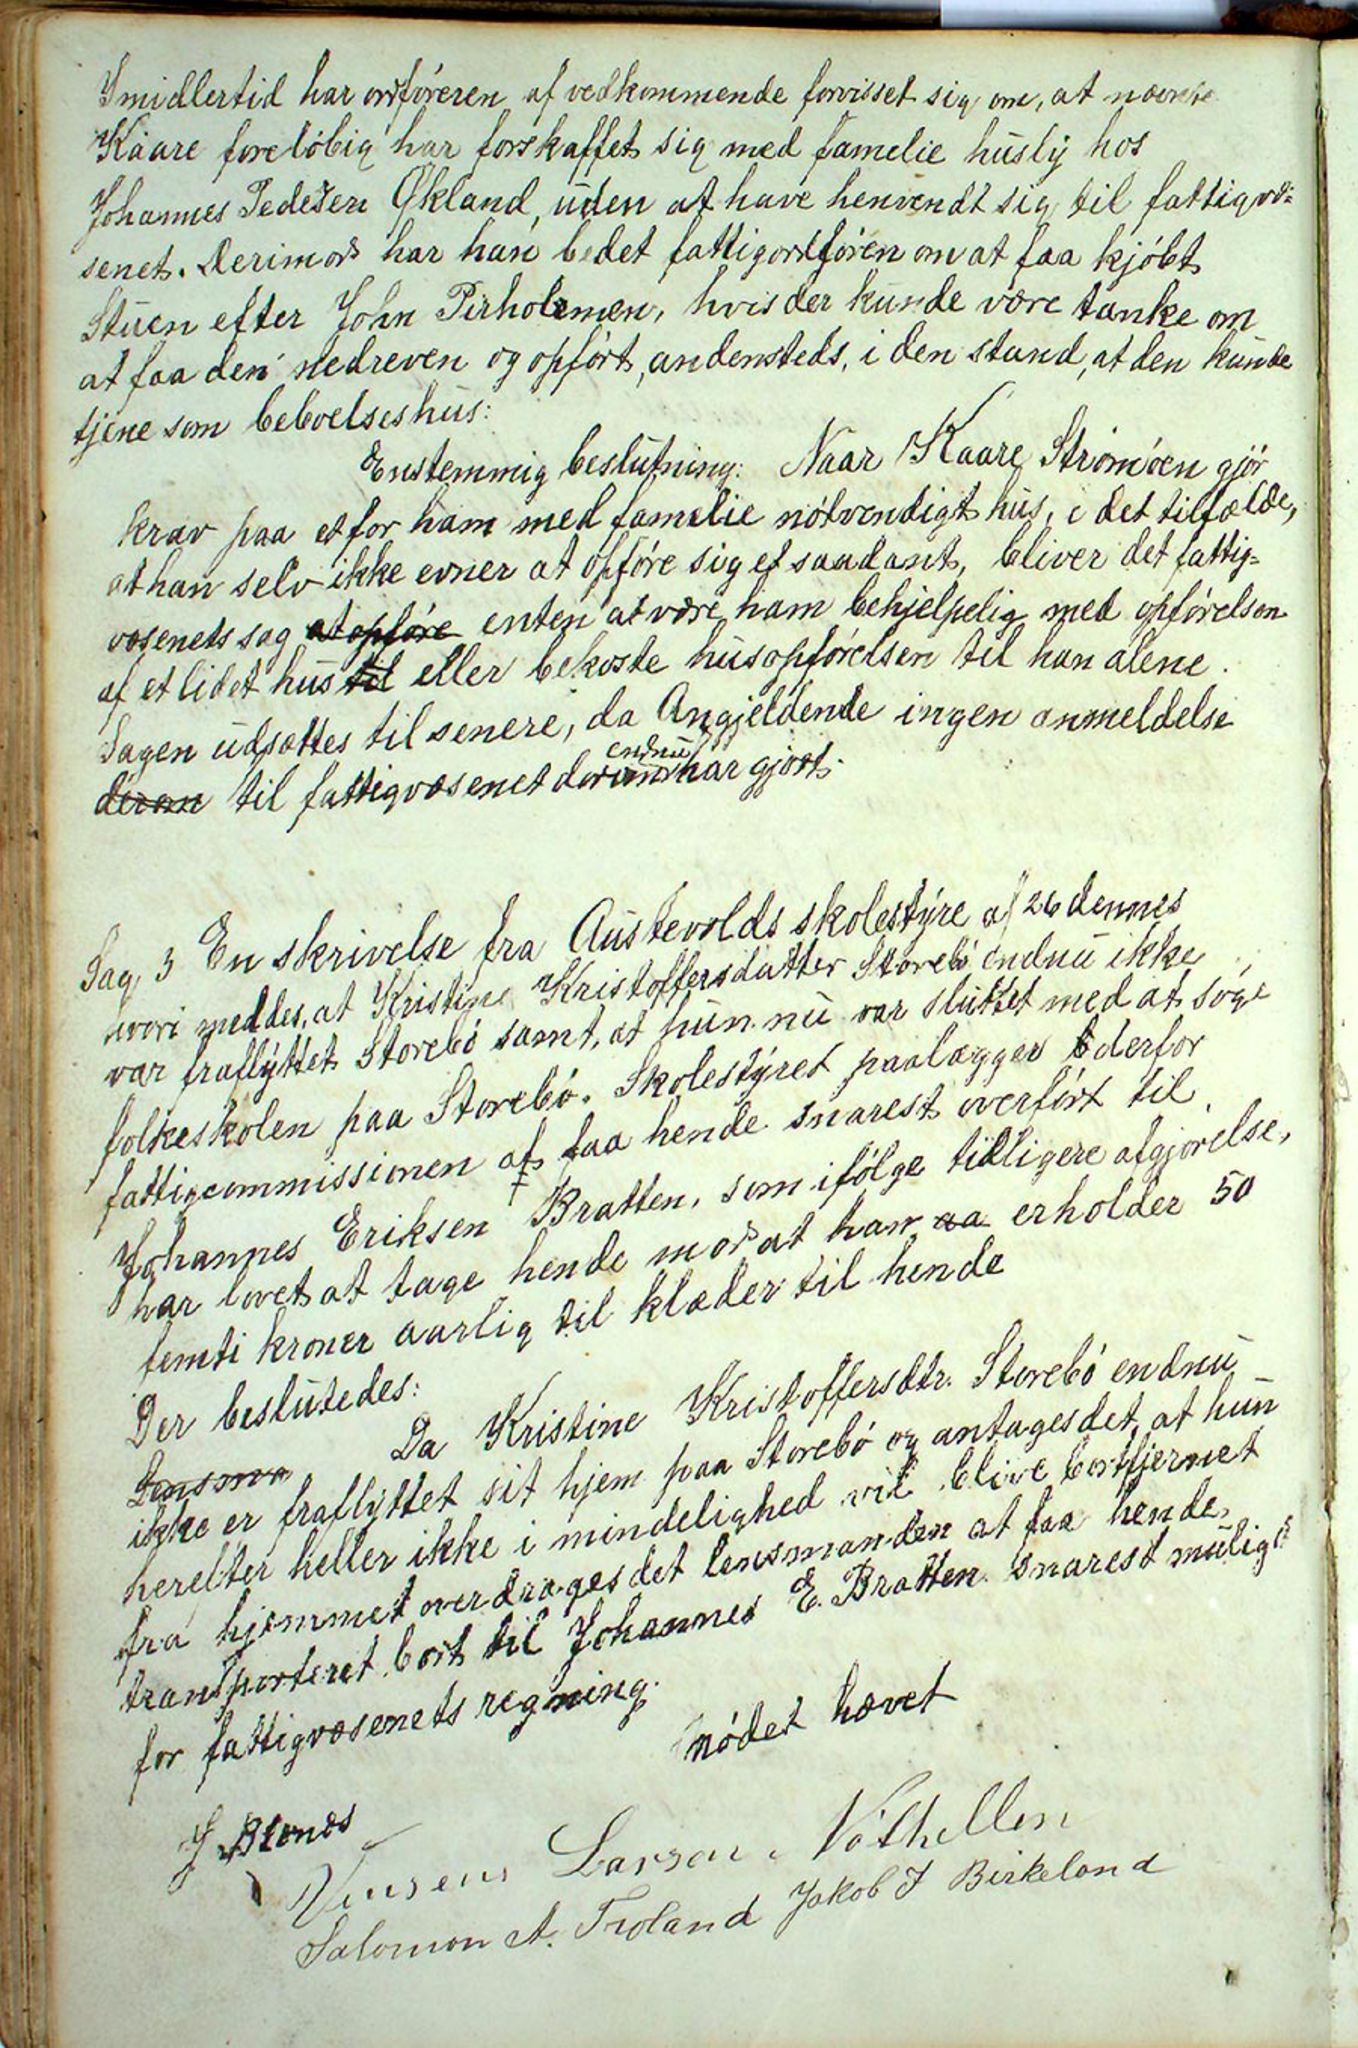 Imidlertid har ordføreren af vedkommende forvisset sig om, at nævnte
Kaare foreløbig har forskaffet sig med famelie husly hos
Johannes Pedersen Økland, uden at have henvendt sig til fattigvæ-
senet. Derimod har han bedet fattigordføren om at faa kjøbt
Stuen efter John Pirholemen, hvis der kunde være tanke om
at faa den nedreven og opført, andensteds, i den stand, at den kunde
tjene som bebvelseshus:
Enstemmig beslutning: Naar Kaare Strømøen gjør
krav paa et for ham med famelie nøtvendigt hus, i det tilfælde,
at han selv ikke evner at opføre sig et saadant, bliver det fattig-
væsenets sag at opføre enten at være ham behjelpelig med opførelsen
af et lidet hus til eller bekoste husopførelsen til han alene.
Sagen udsættes til senere, da Angjeldende ingen anmeldelse
derom til fattigvæsenet derom endnu har gjort.
Sag 3 En skrivelse fra Austevolds skolestyre af 26 dennes
hvori meddes, at Kristine Kristoffersdatter Storebø endnu ikke
var fraflyttet Storebø samt, at hun nu var sluttet med at søge
folkeskolen paa Storebø. Skolestyret paalægger derfor
fattigcommissionen at faa hende snarest overført til
Johannes Eriksen Bratten, som ifølge tidligere afgjørelse,
har lovet at tage hende mod at han aa erholder 50
femti kroner aarlig til klæder til hende
Der beslutedes:
Lensma Da Kristine Kristoffersdtr. Storebø endnu
ikke er fraflyttet sit hjem paa Storebø og antages det, at hun
herefter heller ikke i mindelighed vil blive bortfjernet
fra hjemmet overdrages det lensmanden at faa hende
transporteret bort til Johannes E. Bratten snarest muligt
for fattigvæsenets regning.
Mødet hævet
J Blænes
Vinsens Larsen Nøthellen
Salomon A. Troland Jakob J Birkeland